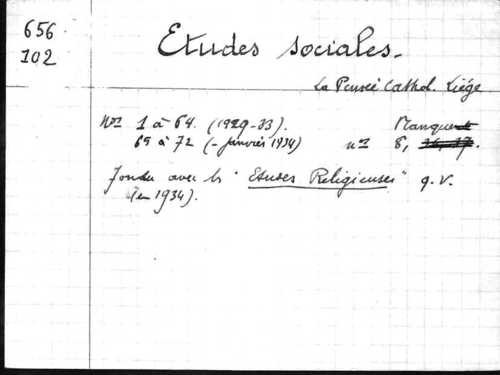 656
102
Etudes sociales.
La Pensée Cathol. Liége
Nos 1 à 64. (1929-33). Manquent
65 à 72 (- janvier 1934) nos 8, 16, 17.
Fondu avec les "Etudes Religieuses" q.v.
(en 1934).